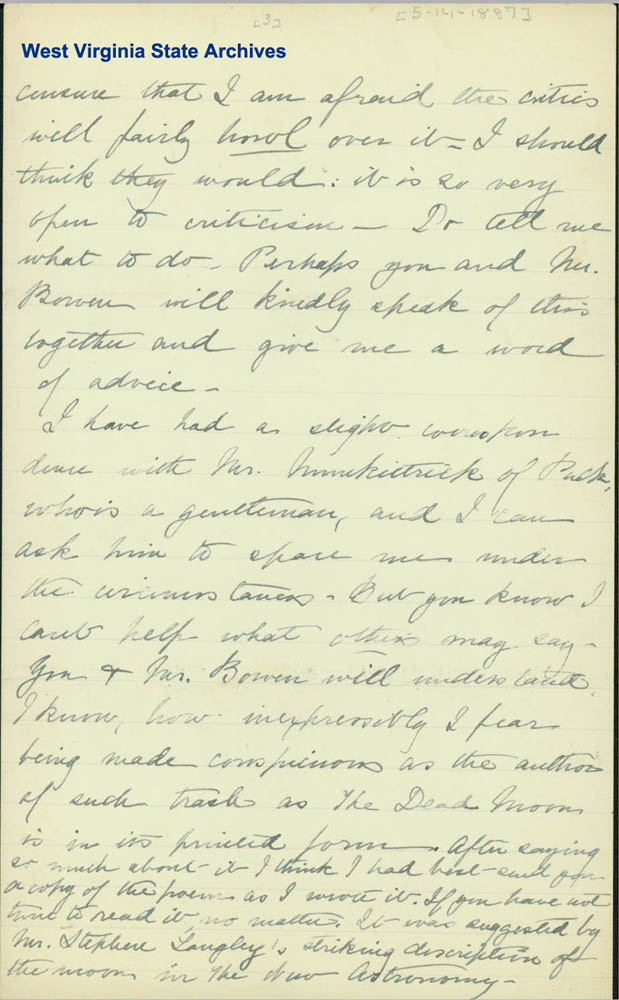 [3]
[5-14-1887]
West Virginia State Archives
censure that I am afraid the critics
will fairly howl over it – I should
think they would: it is so very
open to criticism – Do tell me
what to do – Perhaps you and Mr.
Bowen will kindly speak of this
together and give me a word
of advice –
I have had a slight correspon
dence with Mr. Munkittrick of Puck,
who is a gentleman, and I can
ask him to spare me under
the circumstances – But you know I
can't help what others may say –
You & Mr. Bowen will understand,
I know, how inexpressibly I fear
being made conspicuous as the author
of such trash as The Dead Moon
is in its printed form. After saying
so much about it I think I had best send you
a copy of the poem as I wrote it. If you have not
time to read it, no matter. It was suggested by
Mr. Stephen Langley's striking description of
the moon in The New Astronomy –